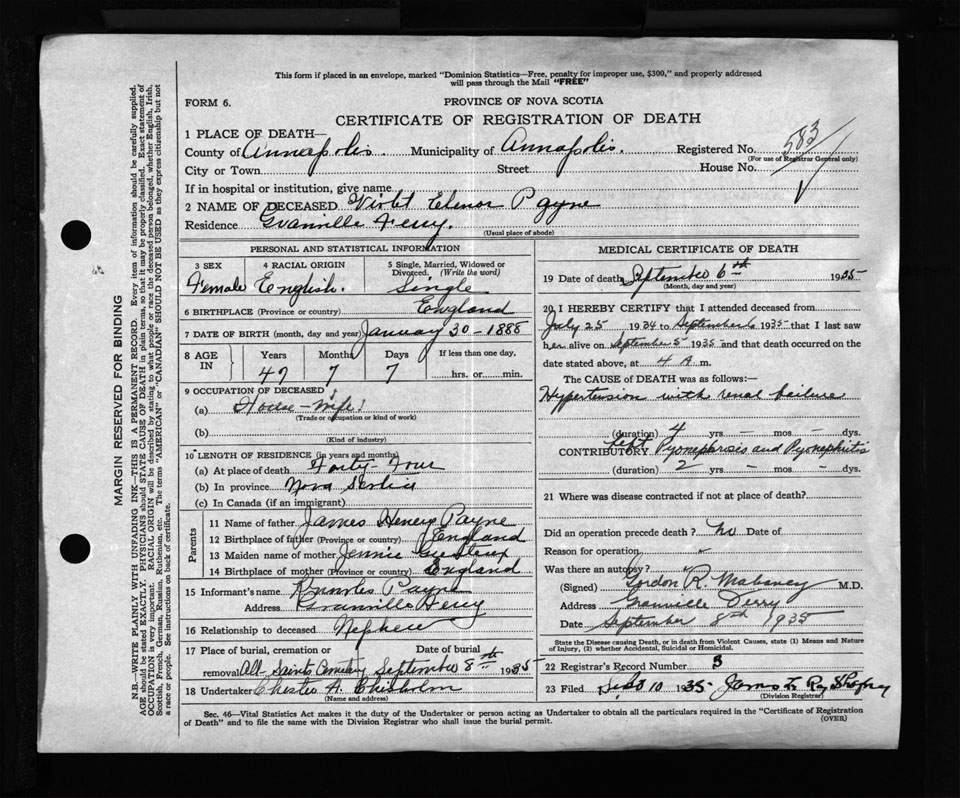 This form if placed in an envelope, marked "Dominion Statistics—Free, penalty for improper use, $300," and properly addressed
will pass through the Mail "FREE"
FORM 6.
PROVINCE OF NOVA SCOTIA
CERTIFICATE OF REGISTRATION OF DEATH
1 PLACE OF DEATH—
County of Annapolis. Municipality of Annapolis. Registered No. 583
(For use of Registrar General only)
City or Town Street House No.
If in hospital or institution, give name
2 NAME OF DECEASED Violet Elenor Payne
Residence Granville Ferry.
(Usual place of abode)
PERSONAL AND STATISTICAL INFORMATION
3 SEX 4 RACIAL ORIGIN 5 Single, Married, Widowed or
Divorced. (Write the word)
Female English. Single
6 BIRTHPLACE (Province or country) England
7 DATE OF BIRTH (month, day and year) January 30-1888
8 AGE IN Years Months Days If less than one day,
47 7 7 hrs. or min.
9 OCCUPATION OF DECEASED
(a) House-Wife
(Trade or occupation or kind of work)
(b)
(Kind of industry)
10 LENGTH OF RESIDENCE (in years and months)
(a) At place of death Forty-Four
(b) In province Nova Scotia
(c) In Canada (if an immigrant)
Parents
11 Name of father James Henery Payne
12 Birthplace of father (Province or country) England
13 Maiden name of mother Jennie
14 Birthplace of mother (Province or country) England
15 Informant's name Payne
Address Granville Ferry
16 Relationship to deceased Nephew
17 Place of burial, cremation or Date of burial
removal All Saints Cemetery September 8th 1935
18 Undertaker Chester A. Chisholm
(Name and address)
MEDICAL CERTIFICATE OF DEATH
19 Date of death September 6th 1935
(Month, day and year)
20 I HEREBY CERTIFY that I attended deceased from
July 25 1934 to September 6 1935 that I last saw
her alive on September 5 1935 and that death occurred on the
date stated above, at 4 A m.
The CAUSE OF DEATH was as follows:—
Hypertension with renal failure
(duration) 4 yrs. - mos. - dys.
CONTRIBUTORY left Pyonephrosis and Pyonephritis
(duration) 2 yrs. - mos. - dys.
21 Where was disease contracted if not at place of death?
Did an operation precede death? no Date of
Reason for operation
Was there an autopsy?
(Signed) Gordon R. Mahaney M.D.
Address Granville Ferry
Date September 8th 1935
State the Disease causing Death, or in death from Violent Causes, state (1) Means and Nature
of Injury, (2) whether Accidental, Suicidal or Homicidal.
22 Registrar's Record Number 3
23 Filed Sept 10 1935
(Division Registrar)
Sec. 46—Vital Statistics Act makes it the duty of the Undertaker or person acting as Undertaker to obtain all the particulars required in the "Certificate of Registration
of Death" and to file the same with the Division Registrar who shall issue the burial permit.
(OVER)
MARGIN RESERVED FOR BINDING
N.B.—WRITE PLAINLY WITH UNFADING INK—THIS IS A PERMANENT RECORD. Every item of information should be carefully supplied.
AGE should be stated EXACTLY. PHYSICIANS should STATE CAUSE OF DEATH in plain terms, so that it may be properly classified. Exact statement of
OCCUPATION is very important. RACIAL ORIGIN will be described by stating to what people or race the deceased person belonged, whether English, Irish,
Scottish, French, German, Russian, Ruthenian, etc. The terms "AMERICAN" or "CANADIAN" SHOULD NOT BE USED as they express citizenship but not
a race or people. See instructions on back of certificate.